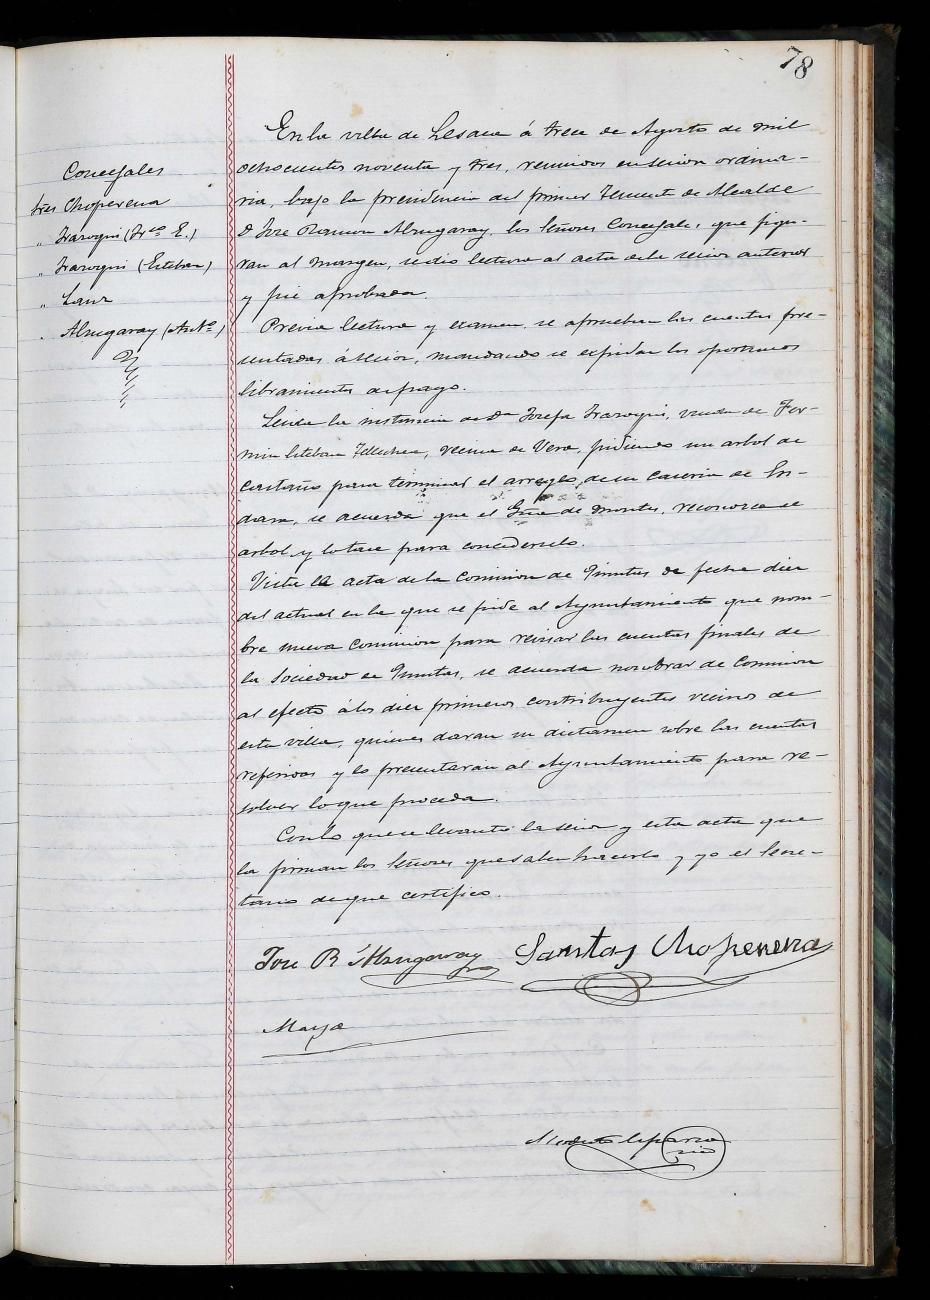 78
Concejales
Sres Choperena
" Irazoqui (Frco E.)
" Irazoqui (Esteban)
" Sanz
" Almgaray (Anto)
En la villa de Lesaca á trece de Agosto de mil
ochocientos noventa y tres, reunidos en sesion ordina-
ria, bajo la presidencia del primer Teniente de Alcalde
D Jose Ramon Almgaray, los Señores Concejales, que figu-
ran al margen, se dio lectura al acta de la sesion anterior
y fué aprobada.
Previa lectura y examen, se aprueban las cuentas pre-
sentadas á sesion, mandando se expidan los oportunos
libramientos de pago.
Leida la instancia de Da Josefa Irazoqui, viuda de Fer-
min Esteban Tellechea, vecina de Vera, pidiendo un arbol de
castaño para terminar el arreglo de su caseria de
se acuerda que el Guia de montes, reconozca ese
arbol y lo tase para concederselo.
Vista la acta de la Comision de de fecha diez
del actual en la que se pide al Ayuntamiento que nom-
bre nueva Comision para revisar las cuentas finales de
la Sociedad de se acuerda nombrar de Comision
al efecto á los diez primeros contribuyentes vecinos de
esta villa, quienes daran su dictamen sobre las cuentas
referidas y lo presentaran al Ayuntamiento para re-
solver lo que proceda.
Con lo que se levanto la sesion y esta acta que
la firman los Señores que saben hacerlo y yo el Secre-
tario de que certifico.
Jose R Almgaray Santos Choperena
Maya